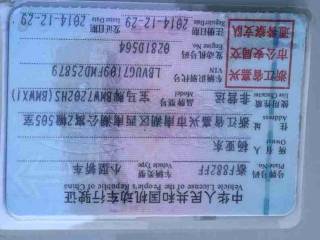 中华人民共和国机动车行驶证
Vehicle License of the People's Republic of China
号牌号码 浙F882FF 车辆类型 小型轿车
Plate No. Vehicle Type
所有人 杨亚东
Owner
住址 浙江省嘉兴市南湖区西南湖公寓2幢505室
Address
使用性质 非营运 品牌型号 宝马牌BMW7202HS(BMWX1)
Use Character Model
浙江省嘉兴
市公安局交
通警察支队
车辆识别代号 LBVUG7109FMD25879
VIN
发动机号码 0281D564
Engine No.
注册日期 2014-12-29 发证日期 2014-12-29
Register Date Issue Date